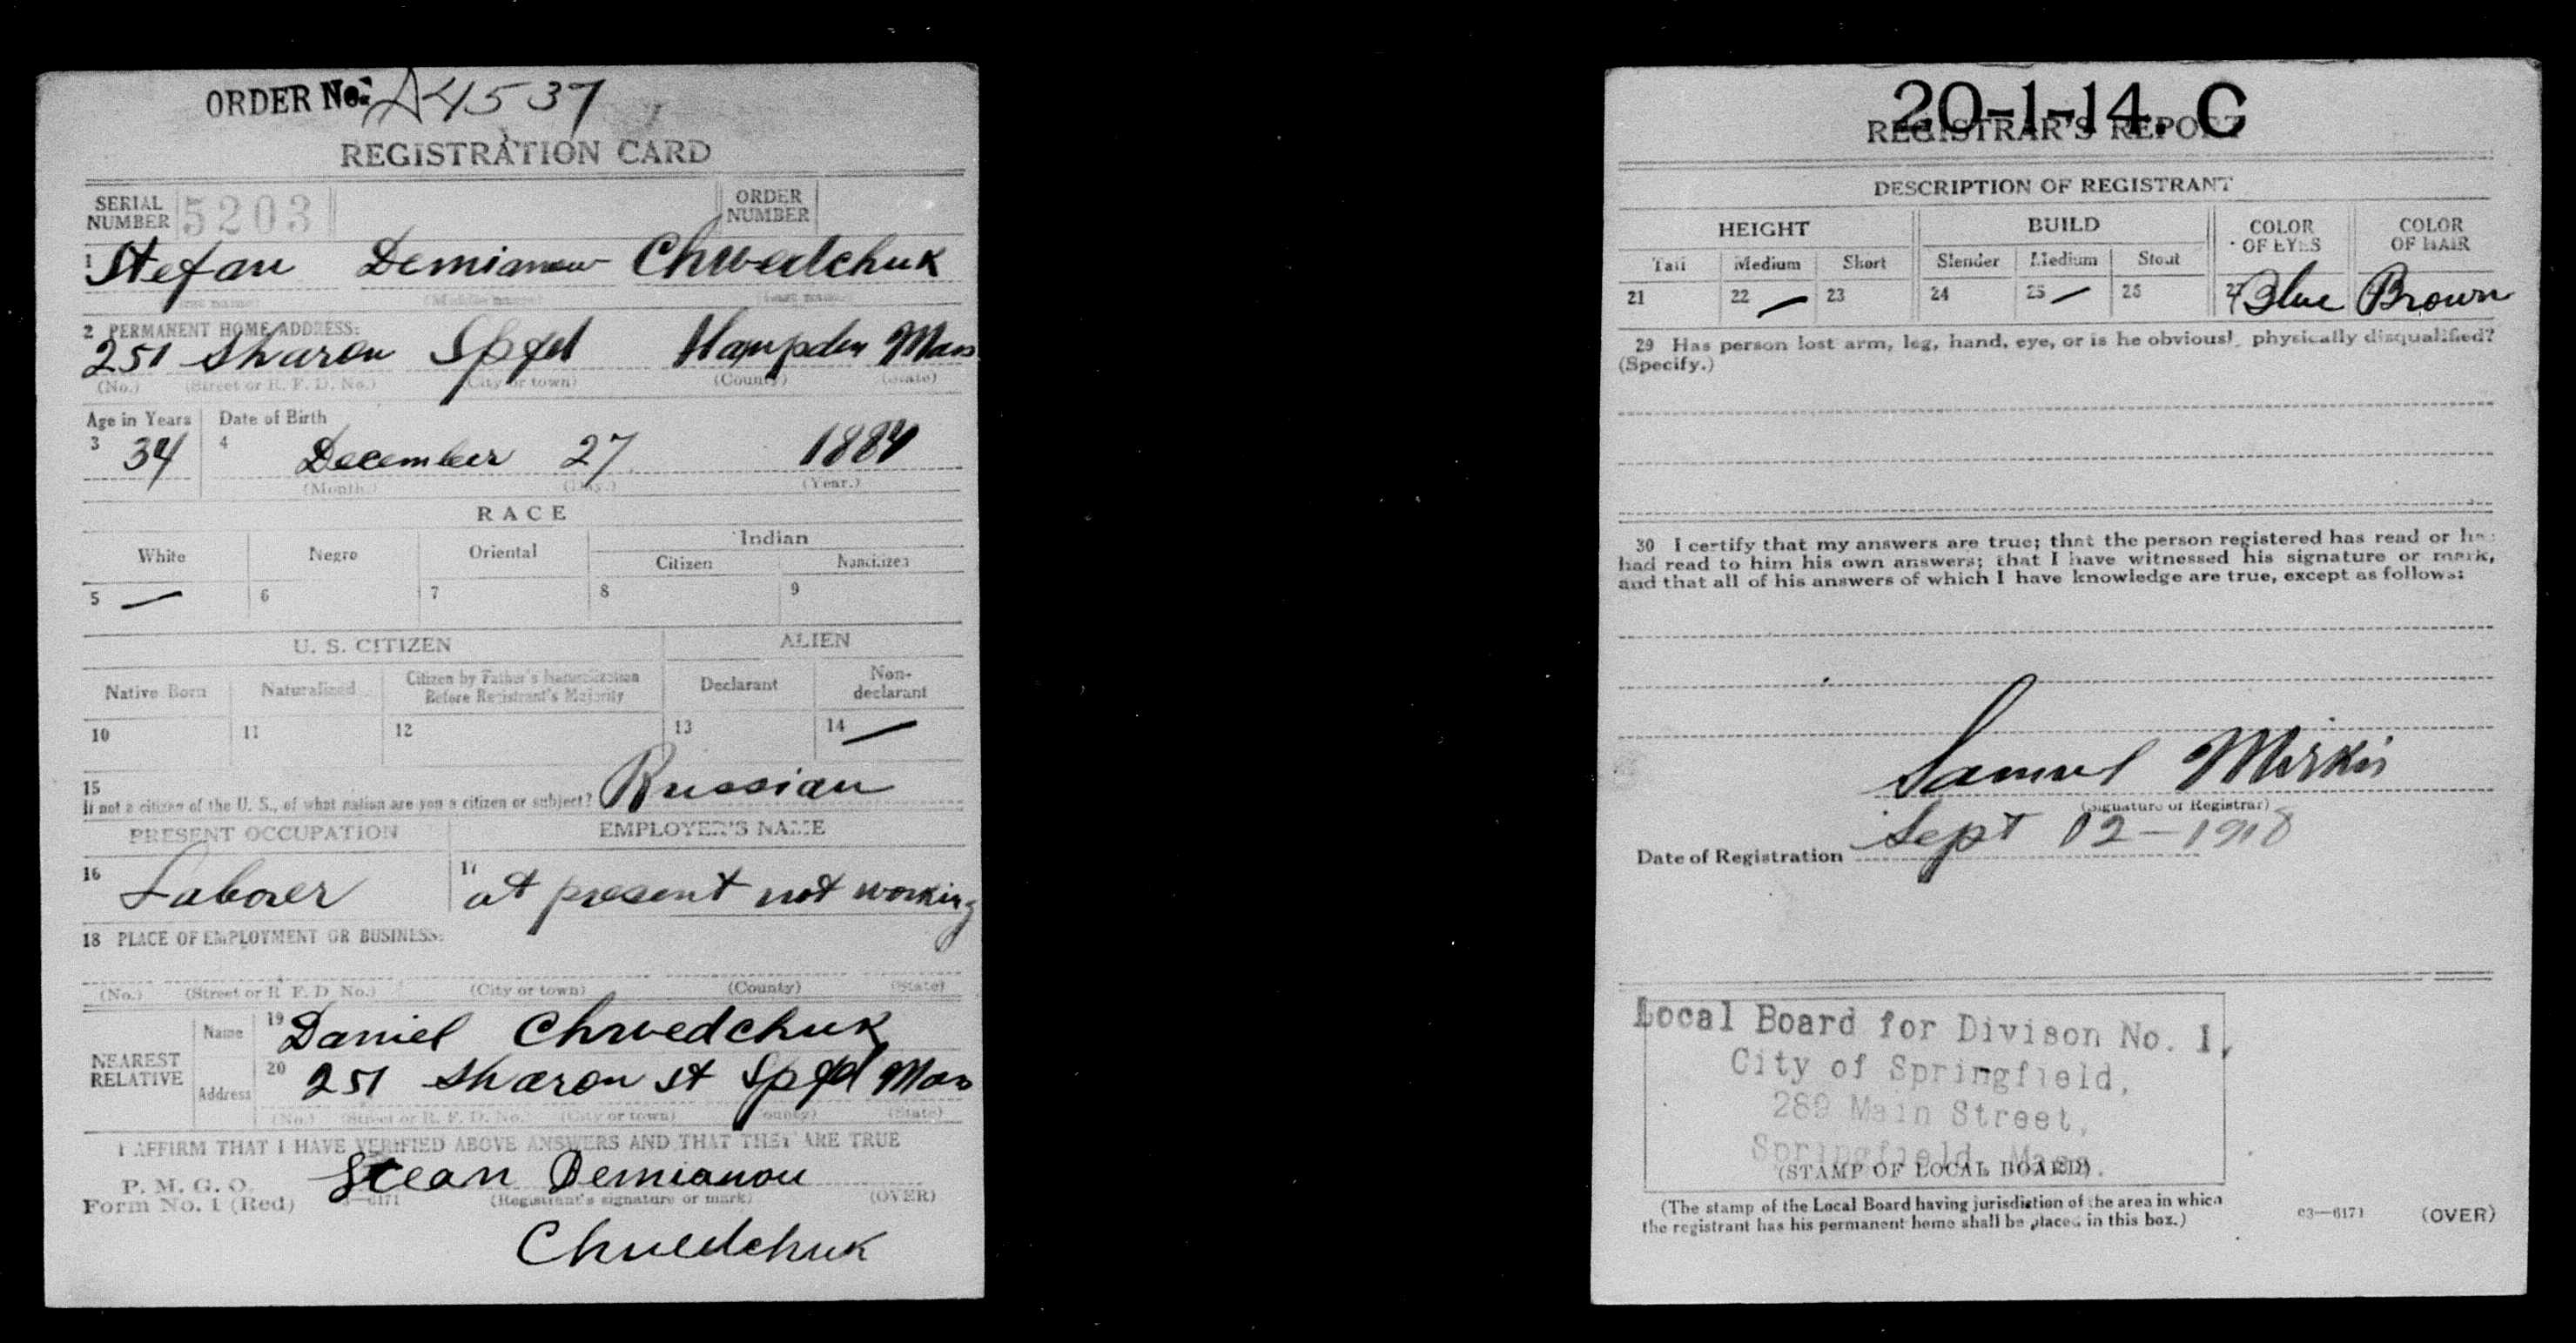 ORDER No. A4537
REGISTRATION CARD
SERIAL NUMBER 5203 ORDER NUMBER
1 Stefan Demianow Chwedchuk
(First name) (Middle name) (Last name)
2 PERMANENT HOME ADDRESS:
251 Sharon Spgd Hampden Mass
(No.) (Street or R. F. D. No.) (City or town) (County) (State)
Age in Years Date of Birth
3 34 4 December 27 1884
(Month.) (Day.) (Year.)
RACE
White Negro Oriental Indian
Citizen Noncitizen
5 — 6 7 8 9
U. S. CITIZEN ALIEN
Native Born Naturalized Citizen by Father's Naturalization Before Registrant's Majority Declarant Non-declarant
10 11 12 13 14 —
15
If not a citizen of the U. S., of what nation are you a citizen or subject? Russian
PRESENT OCCUPATION EMPLOYER'S NAME
16 Laborer 17 at present not working
18 PLACE OF EMPLOYMENT OR BUSINESS:
(No.) (Street or R. F. D. No.) (City or town) (County) (State)
NEAREST RELATIVE Name 19 Daniel Chwedchuk
Address 20 251 Sharon St Spgd Mass
(No.) (Street or R. F. D. No.) (City or town) (County) (State)
I AFFIRM THAT I HAVE VERIFIED ABOVE ANSWERS AND THAT THEY ARE TRUE
P. M. G. O.
Form No. 1 (Red) 3—6171 Stean Demianou
(Registrant's signature or mark) (OVER)
Chwedchuk
20-1-14. C
REGISTRAR'S REPORT
DESCRIPTION OF REGISTRANT
HEIGHT BUILD COLOR OF EYES COLOR OF HAIR
Tall Medium Short Slender Medium Stout
21 22 — 23 24 25 — 26 27 Blue Brown
29 Has person lost arm, leg, hand, eye, or is he obviously physically disqualified?
(Specify.)
30 I certify that my answers are true; that the person registered has read or has
had read to him his own answers; that I have witnessed his signature or mark,
and that all of his answers of which I have knowledge are true, except as follows:
Samuel Mirkin
(Signature of Registrar)
Date of Registration Sept 12 — 1918
Local Board for Divison No. 1,
City of Springfield,
289 Main Street,
Springfield, Mass.
(STAMP OF LOCAL BOARD)
(The stamp of the Local Board having jurisdiction of the area in which
the registrant has his permanent home shall be placed in this box.)
03—6171 (OVER)